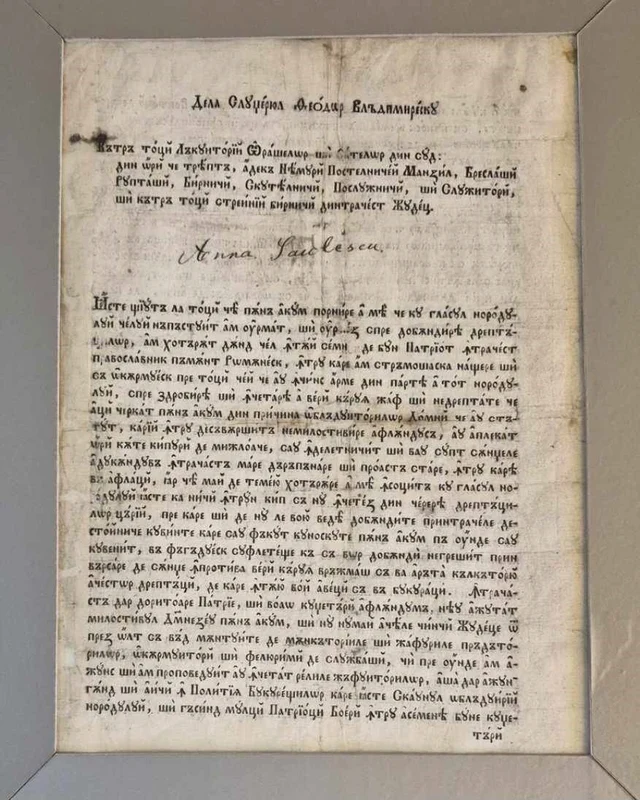 Дела Слꙋџерюл Ѳеѻдѡр Влъдимиреску
Кътръ тоци Лъкꙋиторїй Ѿрашелѡр ши Сателѡр дин сꙋд:
дин ѡрй че трѣптъ, адекъ Нѣмꙋри Постелничей Манзил, Бреслаши
Рꙋпташй, Бирничй, Скꙋтѣлничй, Послꙋжничй, ши Слꙋжиторй,
ши кътръ тоци стреинїй бирничй динтрачест Жꙋдец.
Anna
Исте щїꙋт ла тоци чѣ пѫнъ акꙋм порнире а мѣ че кꙋ гласꙋл нородꙋ-
лꙋй челꙋй нъпъстꙋит ам ꙋрмат, ши спре добѫндире дрептъ-
цилѡр, ам хотърѫт дѫнд чел ѫтѫй семн де бꙋн Патрїот ѫтрачест
православник пъмѫнт Рꙋмѫнеск, ѫтрꙋ каре ам стрѣмошаска нащере ши
съ ѡкѫрмꙋиск пре тоци чей че аꙋ ѫчинс арме дин партѣ а тот нородꙋ-
лꙋй, спре здробирѣ ши ѫчетарѣ а верй кърꙋѧ жаф ши недрептате че
аци черкат пѫнъ акꙋм дин причина ѡблъдꙋиторилѡр Домни че аꙋ стъ-
тꙋт, карїй ѫтрꙋ десъвършит немилостивире афлѫндꙋсъ, аꙋ аплекат
ѡрй кѫте кипꙋри де мижлоаче, саꙋ ѫделетничит ши ваꙋ сꙋпт сѫнцеле
адꙋкѫндꙋвъ ѫтрачастъ маре дъръпънаре ши проастъ старе, ѫтрꙋ карѣ
въ афлаци, ꙗр чѣ май де темею хотърѫре а мѣ ѫсоцитъ кꙋ гласꙋл но-
родꙋлꙋй ꙗсте ка ничй ѫтрꙋн кип съ нꙋ ѫчетез дин черерѣ дрептъци-
лѡр църїй, пре каре ши де нꙋ ле вою ведѣ добѫндите принтрачеле де-
стойниче кꙋвинте каре саꙋ фъкꙋт кꙋноскꙋте пѫнъ акꙋм пъ ꙋнде саꙋ
кꙋвенит, въ фъгъдꙋеск сꙋфлетеще къ съ вѡр добѫнди негрешит прин
върсаре де сѫнџе ѫпротива верй кърꙋѧ връжмаш съ ва аръта кълкъторю
ачестѡр дрептъци, де каре ѫтѫю вой авеци съ въ бꙋкꙋраци. Ѫтрача-
стъ дар доритоаре Патрїе, ши воаѡ кꙋметърй афлѫндꙋмъ, нѣꙋ ажꙋтат
милостивꙋл Дмнезеꙋ пѫнъ акꙋм, ши нꙋ нꙋмай ачѣле чинчй Жꙋдеце ѿ
през ѡлт съ въд мѫнтꙋите де мѫнкъторїиле ши жафꙋриле пръдъто-
рилѡр, ѡкѫрмꙋиторй ши фелюримй де слꙋжбаши, чи пре ꙋнде ам а-
жꙋнс ши ам проповедꙋит аꙋ ѫчетат релиле жъфꙋиторилѡр, аша дар ажꙋн-
гѫнд ши аичй ѫ Политїѧ Бꙋкꙋрещилѡр каре ꙗсте Скаꙋнꙋл ѡблъдꙋирїй
нородꙋлꙋй, ши гъсинд мꙋлци Патрїоци Боерй ѫтрꙋ асеменѣ бꙋне кꙋџе-
търй